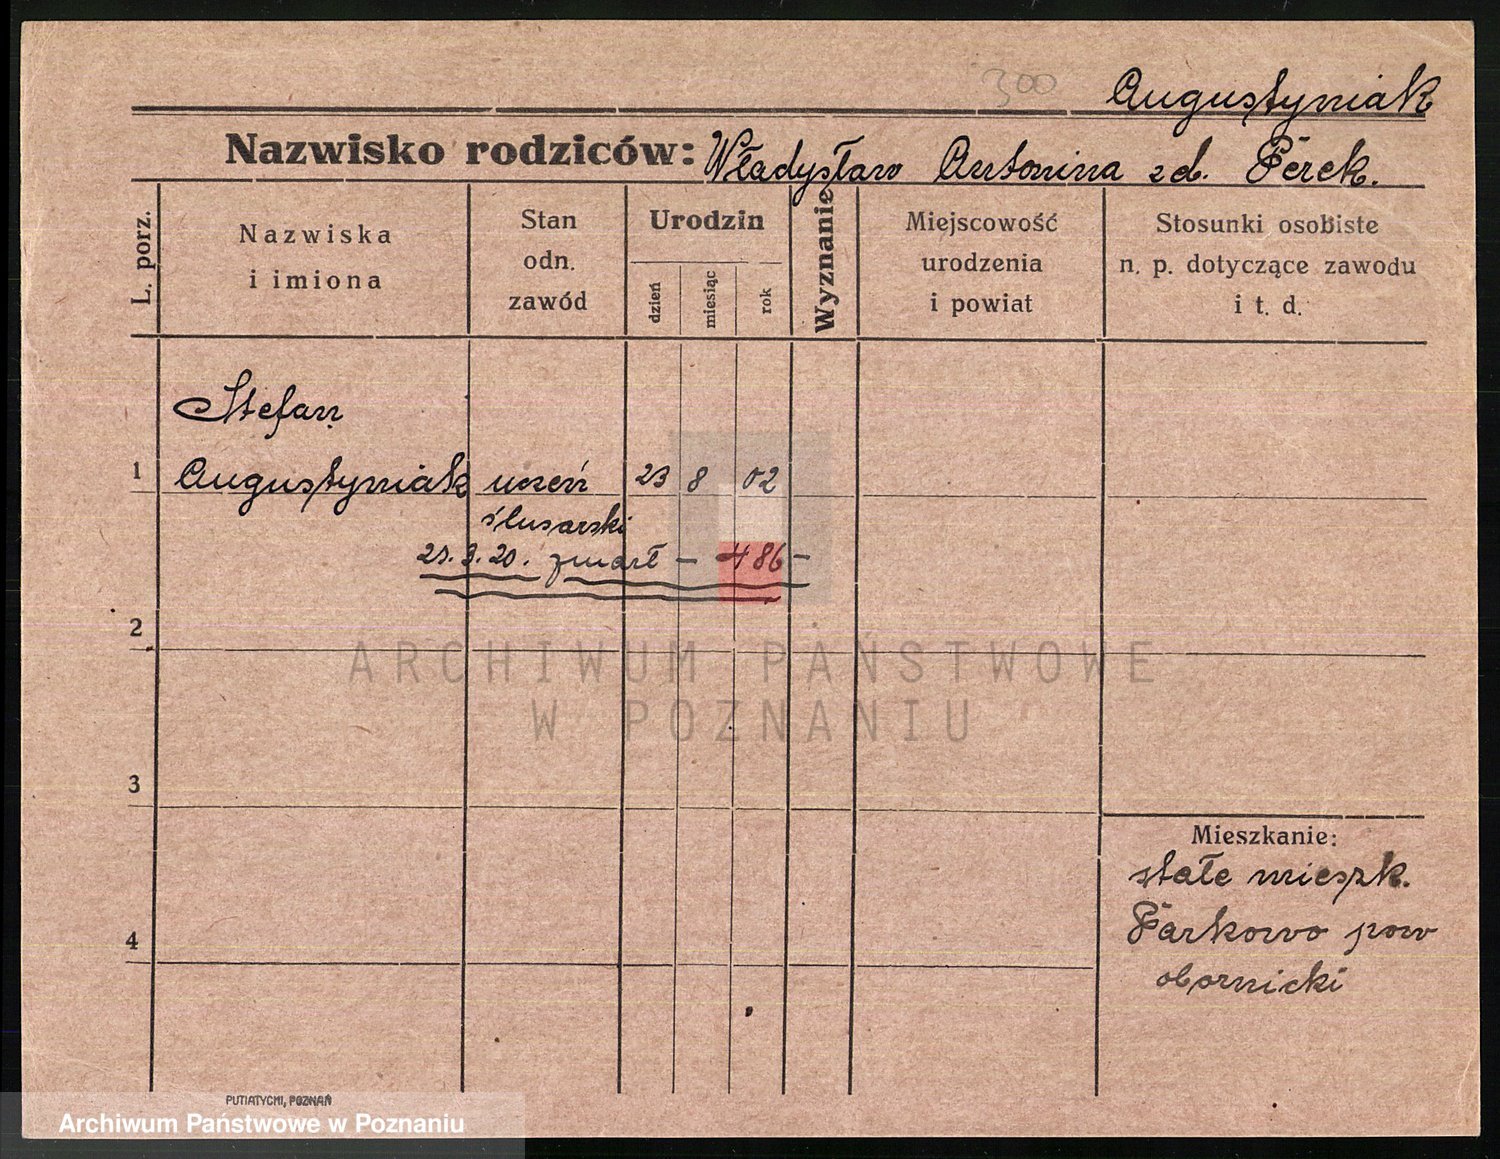 300 Augustyniak
Nazwisko rodziców: Władysław Antonina zd. Perek.
L. porz.
Nazwiska
i imiona
Stan
odn.
zawód
Urodzin
dzień
miesiąc
rok
Wyznanie
Miejscowość
urodzenia
i powiat
Stosunki osobiste
n. p. dotyczące zawodu
i t. d.
Stefan
1 Augustyniak uczeń 23 8 02
ślusarski
zmarł – 486 –
2
ARCHIWUM PAŃSTWOWE
W POZNANIU
3
Mieszkanie:
stałe mieszk.
Parkowo pow
4
obornicki
PUTIATYCKI, POZNAŃ
Archiwum Państwowe w Poznaniu